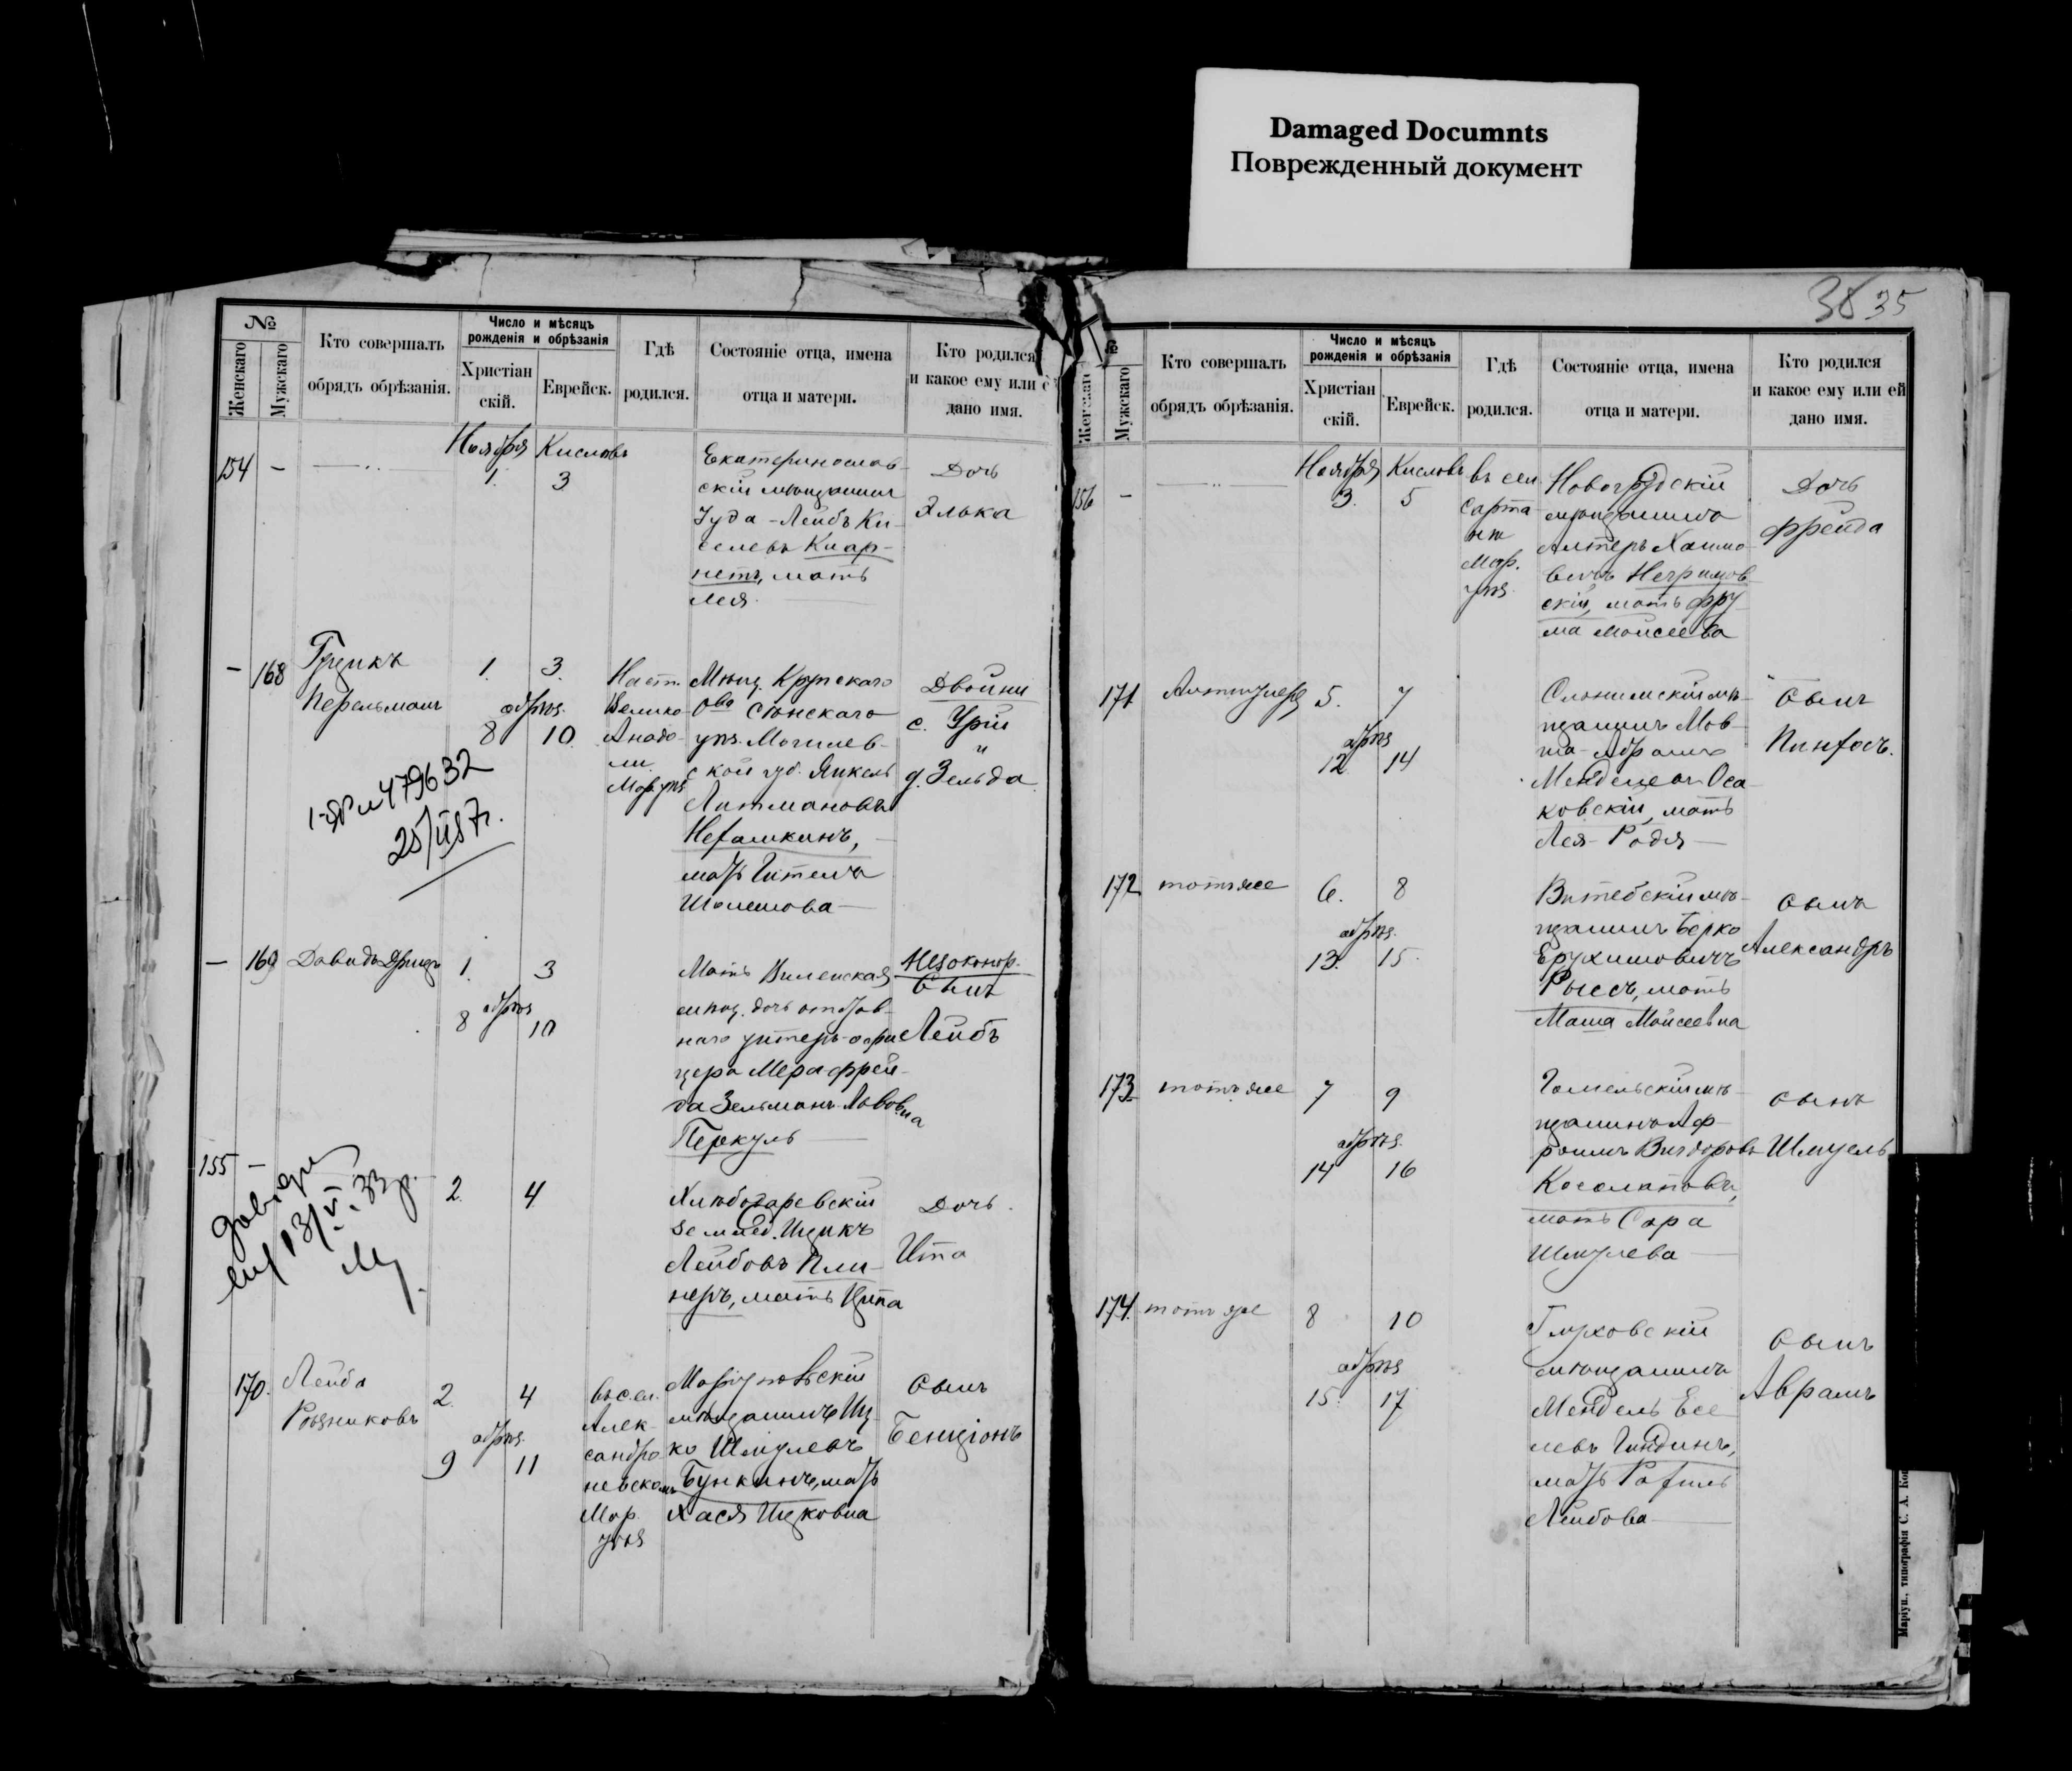 Damaged Documnts
Поврежденный документ
№
Женскаго
Мужскаго
Кто совершалъ
обрядъ обрѣзанія.
Число и мѣсяцъ
рожденія и обрѣзанія
Христіан
скій.
Еврейск.
Гдѣ
родился.
Состояніе отца, имена
отца и матери.
Кто родился
и какое ему или е
дано имя.
Ноября Кислевъ
154 —
1. 3
Екатеринослав-
скій мѣщанинъ
Іуда-Лейбъ Ки-
селевъ Кнар-
нетъ, мать
Лея.
Дочь
Элька
— 168
Гріцикъ
Перельманъ
1. 3.
обрѣз.
8 10.
Наст.
Велико
Анадо-
ли
Мар. уѣз
Мѣщ. Крупскаго
Ова Сѣнскаго
уѣз. Могилев-
ской губ. Янкель
Литмановъ
Нехамкинъ,
мать Гителя
Шолемова
Двойни
с. Урій
"
д. Зельда
25/
— 169
Давидъ
1. 3
обрѣз
8 10
Мать Виленская
мѣщ. дочь отстав-
наго унтеръ-офи
цера Мера Фрей-
да Зельманъ-Лювовна
Перкуль
Незаконор.
Сынъ
Лейбъ
155 —
13/V. 33 р.
2. 4
Хлѣбодаревскій
землед. Ицикъ
Лейбовъ Пли-
неръ, мать Ципа
Дочь.
Ита
170.
Лейба
Рѣзниковъ
2. 4
обрѣз.
9 11
въ сел.
Алек-
сандро
невском
Мар.
уѣз
Маріупольскій
мѣщанинъ Иц-
ко Шмулевъ
Бункинъ, мать
Хася Ицковна
Сынъ
Бенціонъ
38 35
№
Мужскаго
Кто совершалъ
обрядъ обрѣзанія.
Число и мѣсяцъ
рожденія и обрѣзанія
Христіан
скій.
Еврейск.
Гдѣ
родился.
Состояніе отца, имена
отца и матери.
Кто родился
и какое ему или ей
дано имя.
Ноября Кислевъ
156 —
3. 5
въ сел
Сарта
нѣ
Мар.
уѣз.
Новогрудскій
мѣщанинъ
Алтеръ Хаимо
вичъ Негримов
скій, мать Фру
ма Моисеева
Дочь
Фрейда
171
5. 7
обрѣз
12 14
Слонимскій мѣ-
щанинъ Мов-
ша-Абрамъ
Менделевъ Оса
ковскій, мать
Лея-Родя
Сынъ
Пинхосъ.
172 тотъ же
6. 8
обрѣз.
13. 15.
Витебскій мѣ-
щанинъ Берко
Ерухимовичъ
Рыссъ, мать
Маша Моисеевна
Сынъ
Александръ
173 тотъ же
7 9
обрѣз.
14 16
Гомельскій мѣ-
щанинъ Аф-
роимъ Вигдоровъ
Косолаповъ,
мать Сара
Шмулева
Сынъ
Шмуель
174. тотъ же
8 10
обрѣз
15. 17
Глуховскій
мѣщанинъ
Мендель Есе
левъ Гиндинъ,
мать Рахиль
Лейбова
Сынъ
Аврамъ
Маріуп., типографія С. А. Ко